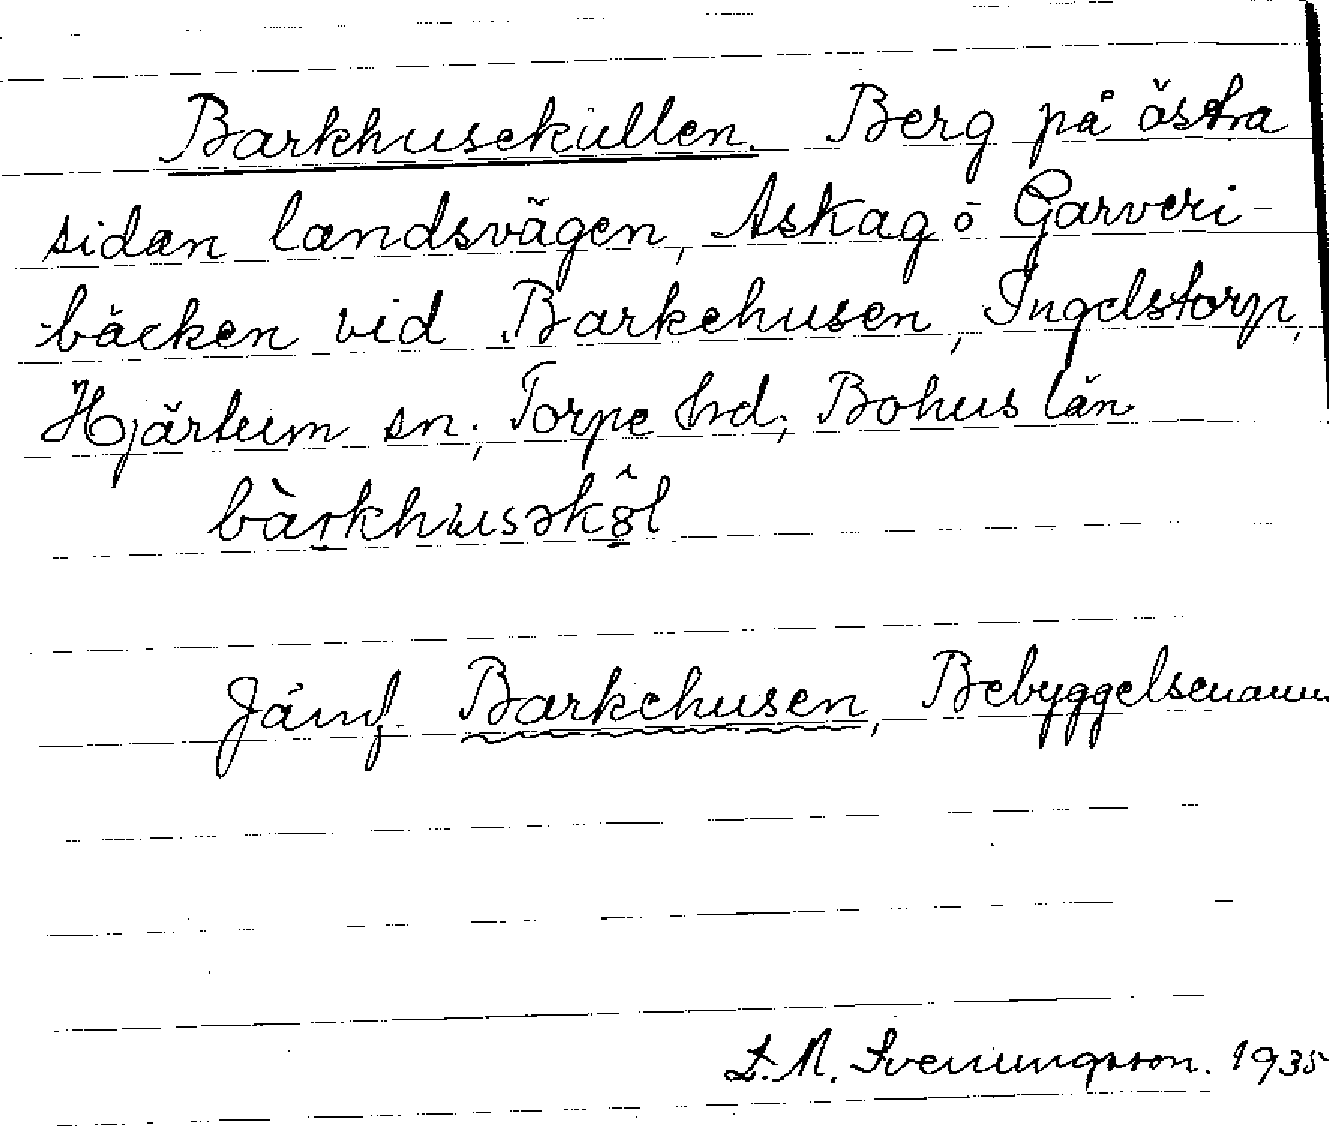 Barkhusekullen. Berg på östra
sidan landsvägen, Askag o Garveri-
-bäcken vid Barkehusen, Ingelstorp,
Hjärtum sn; Torpe hd; Bohus län
bàrkhusəkȣ̂l
Jämf Barkehusen, Bebyggelsenamn
L. M. Svenungsson. 1935